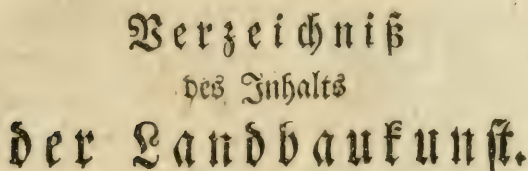 Verzeichniß
des Inhalts
der Landbaukunst.